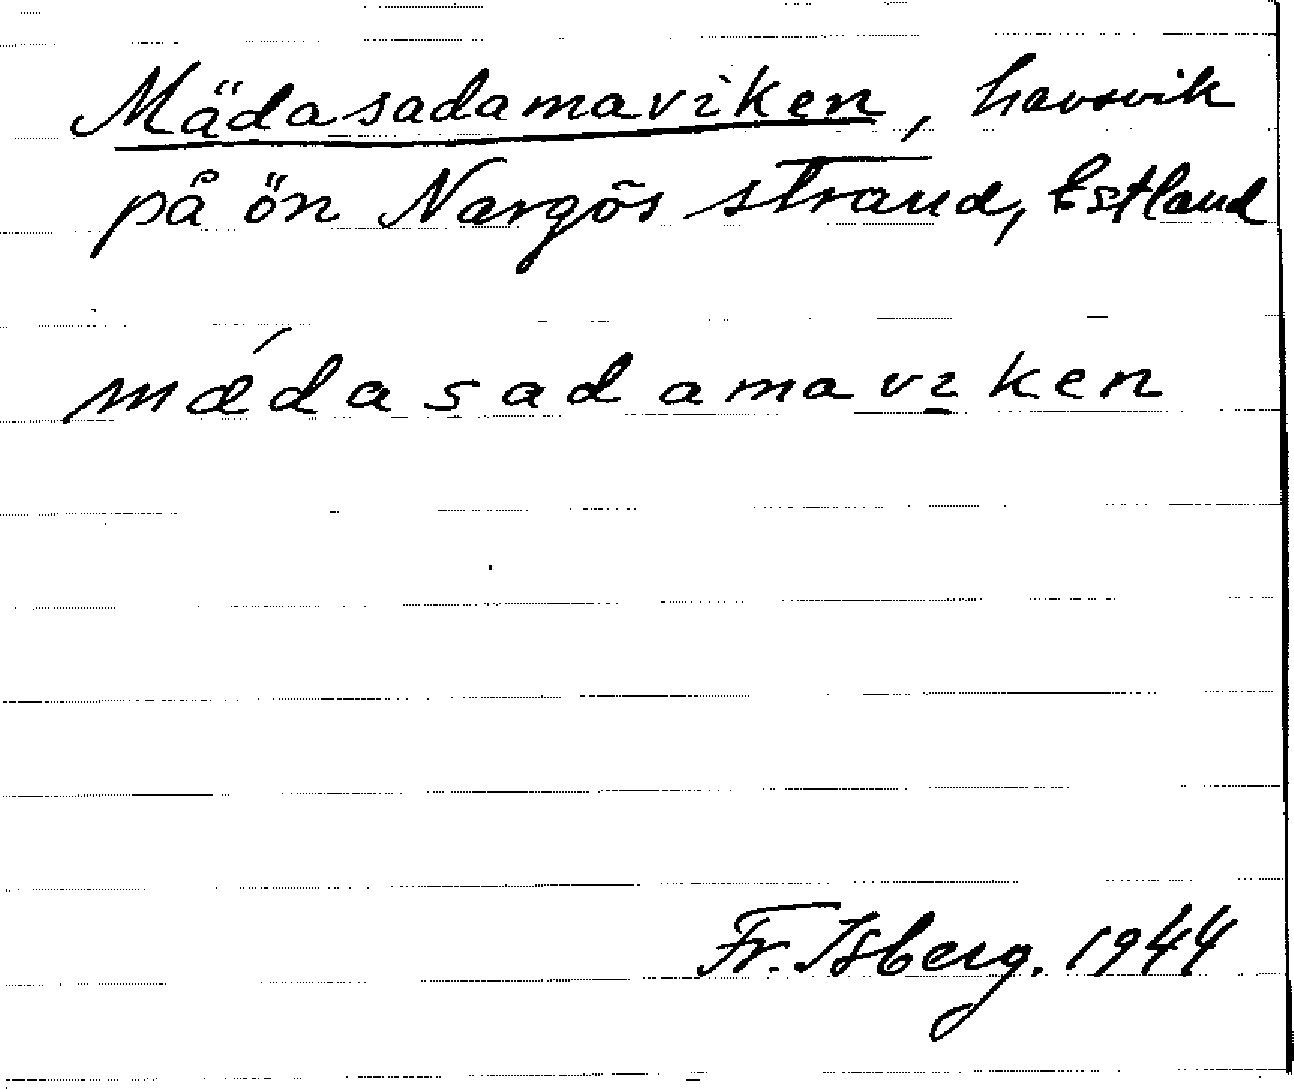 Mädasadamaviken, havsvik
på ön Nargös strand, Estland
mǽdasadamavi̱ken
Fr. Isberg. 1944